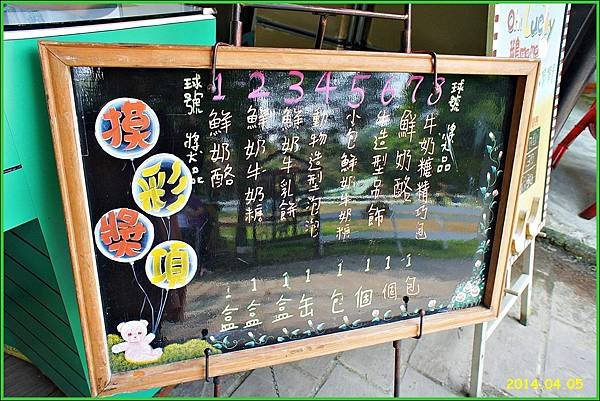 摸彩獎項
球號 1 2 3 4 5 6 7 8 球號
獎品
鮮奶酪 1盒
鮮奶牛奶糖 1盒
鮮奶牛乳餅 1盒
動物造型泡泡 1缶
小包鮮奶牛奶糖 1包
牛造型吊飾 1個
鮮奶酪 1個
牛奶糖精巧包 1包
獎品
Lucky
2014.04.05